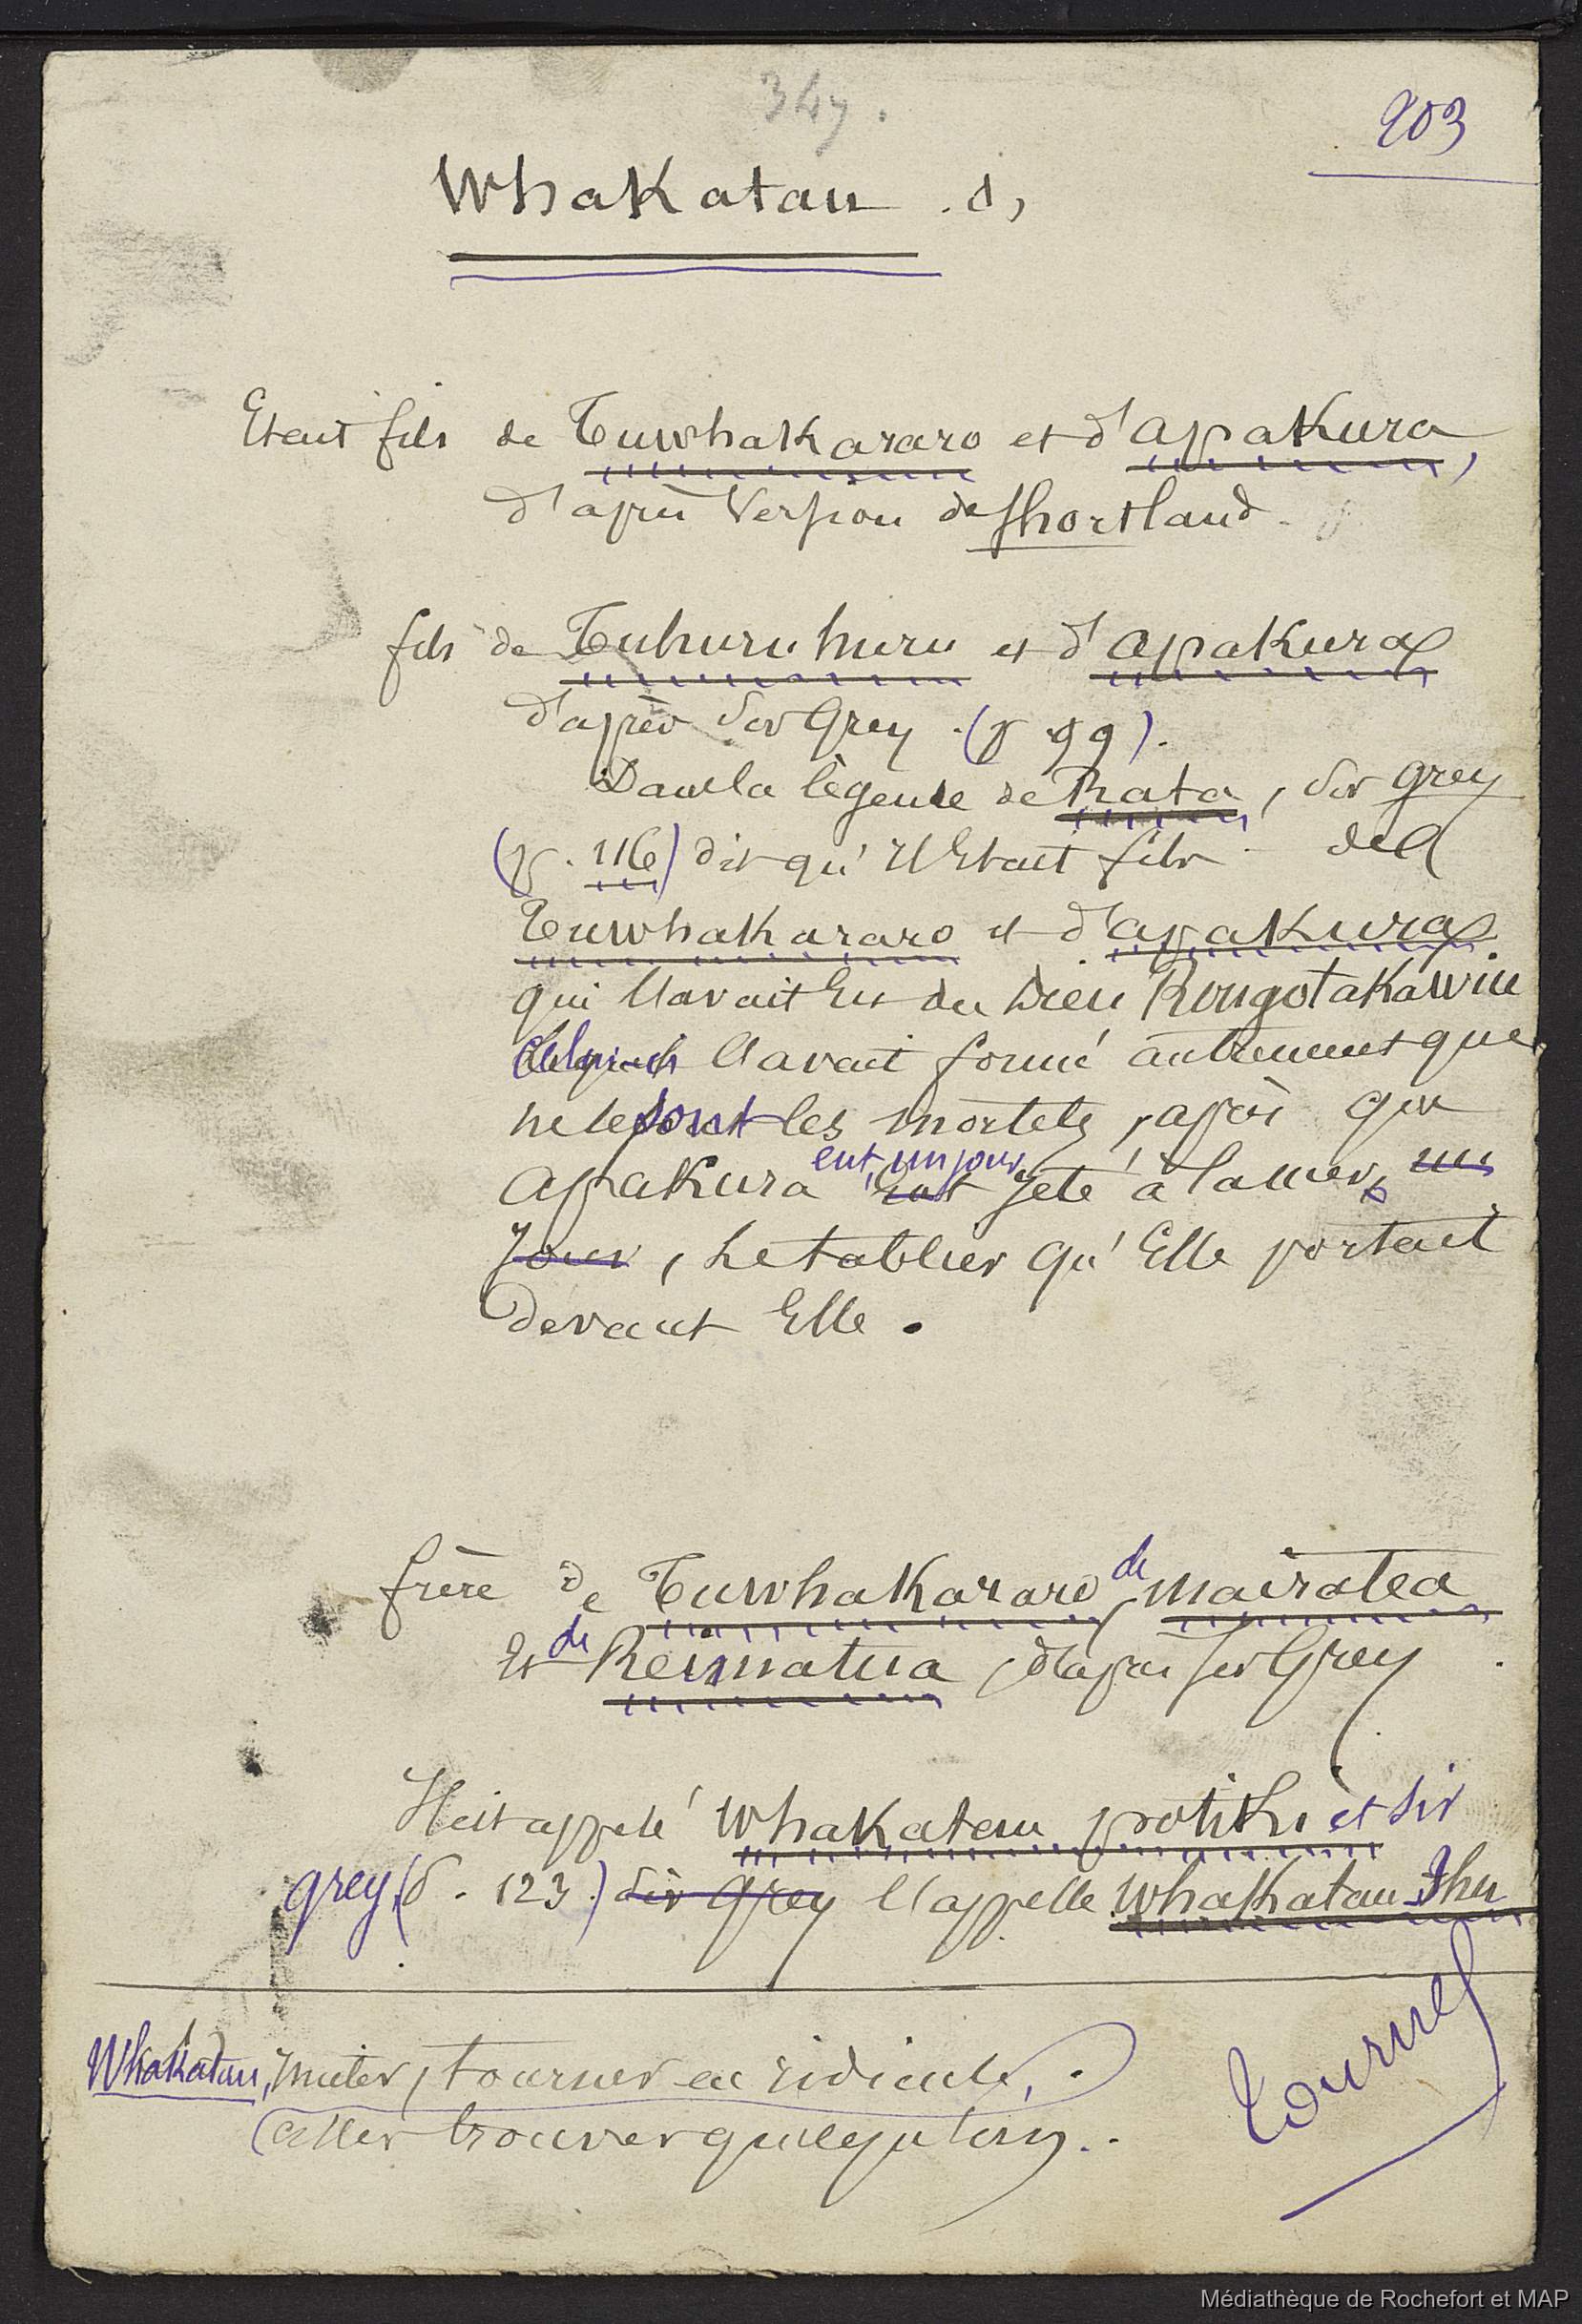 347.
203
Whakatau . d,
Etait fils de Tuwhakararo et d'apakura,
d'après Version de Shortland.
fils de Tuhuruhuru et d'apakura
d'après Sir Grey . (p 99).
Dans la lègende de Rata, Sir Grey
(p. 116) dit qu'il Etait fils de
Tuwhakararo et d'apakura
qui l'avait Eu du Dieu Rongotakawiu
celui-ci l'avait formé autrement que
ne le font les mortels, après que
apakura eut, un jour, Eut jeté à la mer, un
Jour, le tablier qu'Elle portait
devant Elle.
frère de Tuwhakararo, de mairatea
Et de Reimatua, d'après Sir Grey.
Il est appelé Whakatau potiki et Sir
grey, (p. 123.) Sir Grey l'appelle Whakatau Ihu
Whakatau, imiter, tourner en ridicule,.
aller trouver quelqu'un..
tourner
Médiathèque de Rochefort et MAP